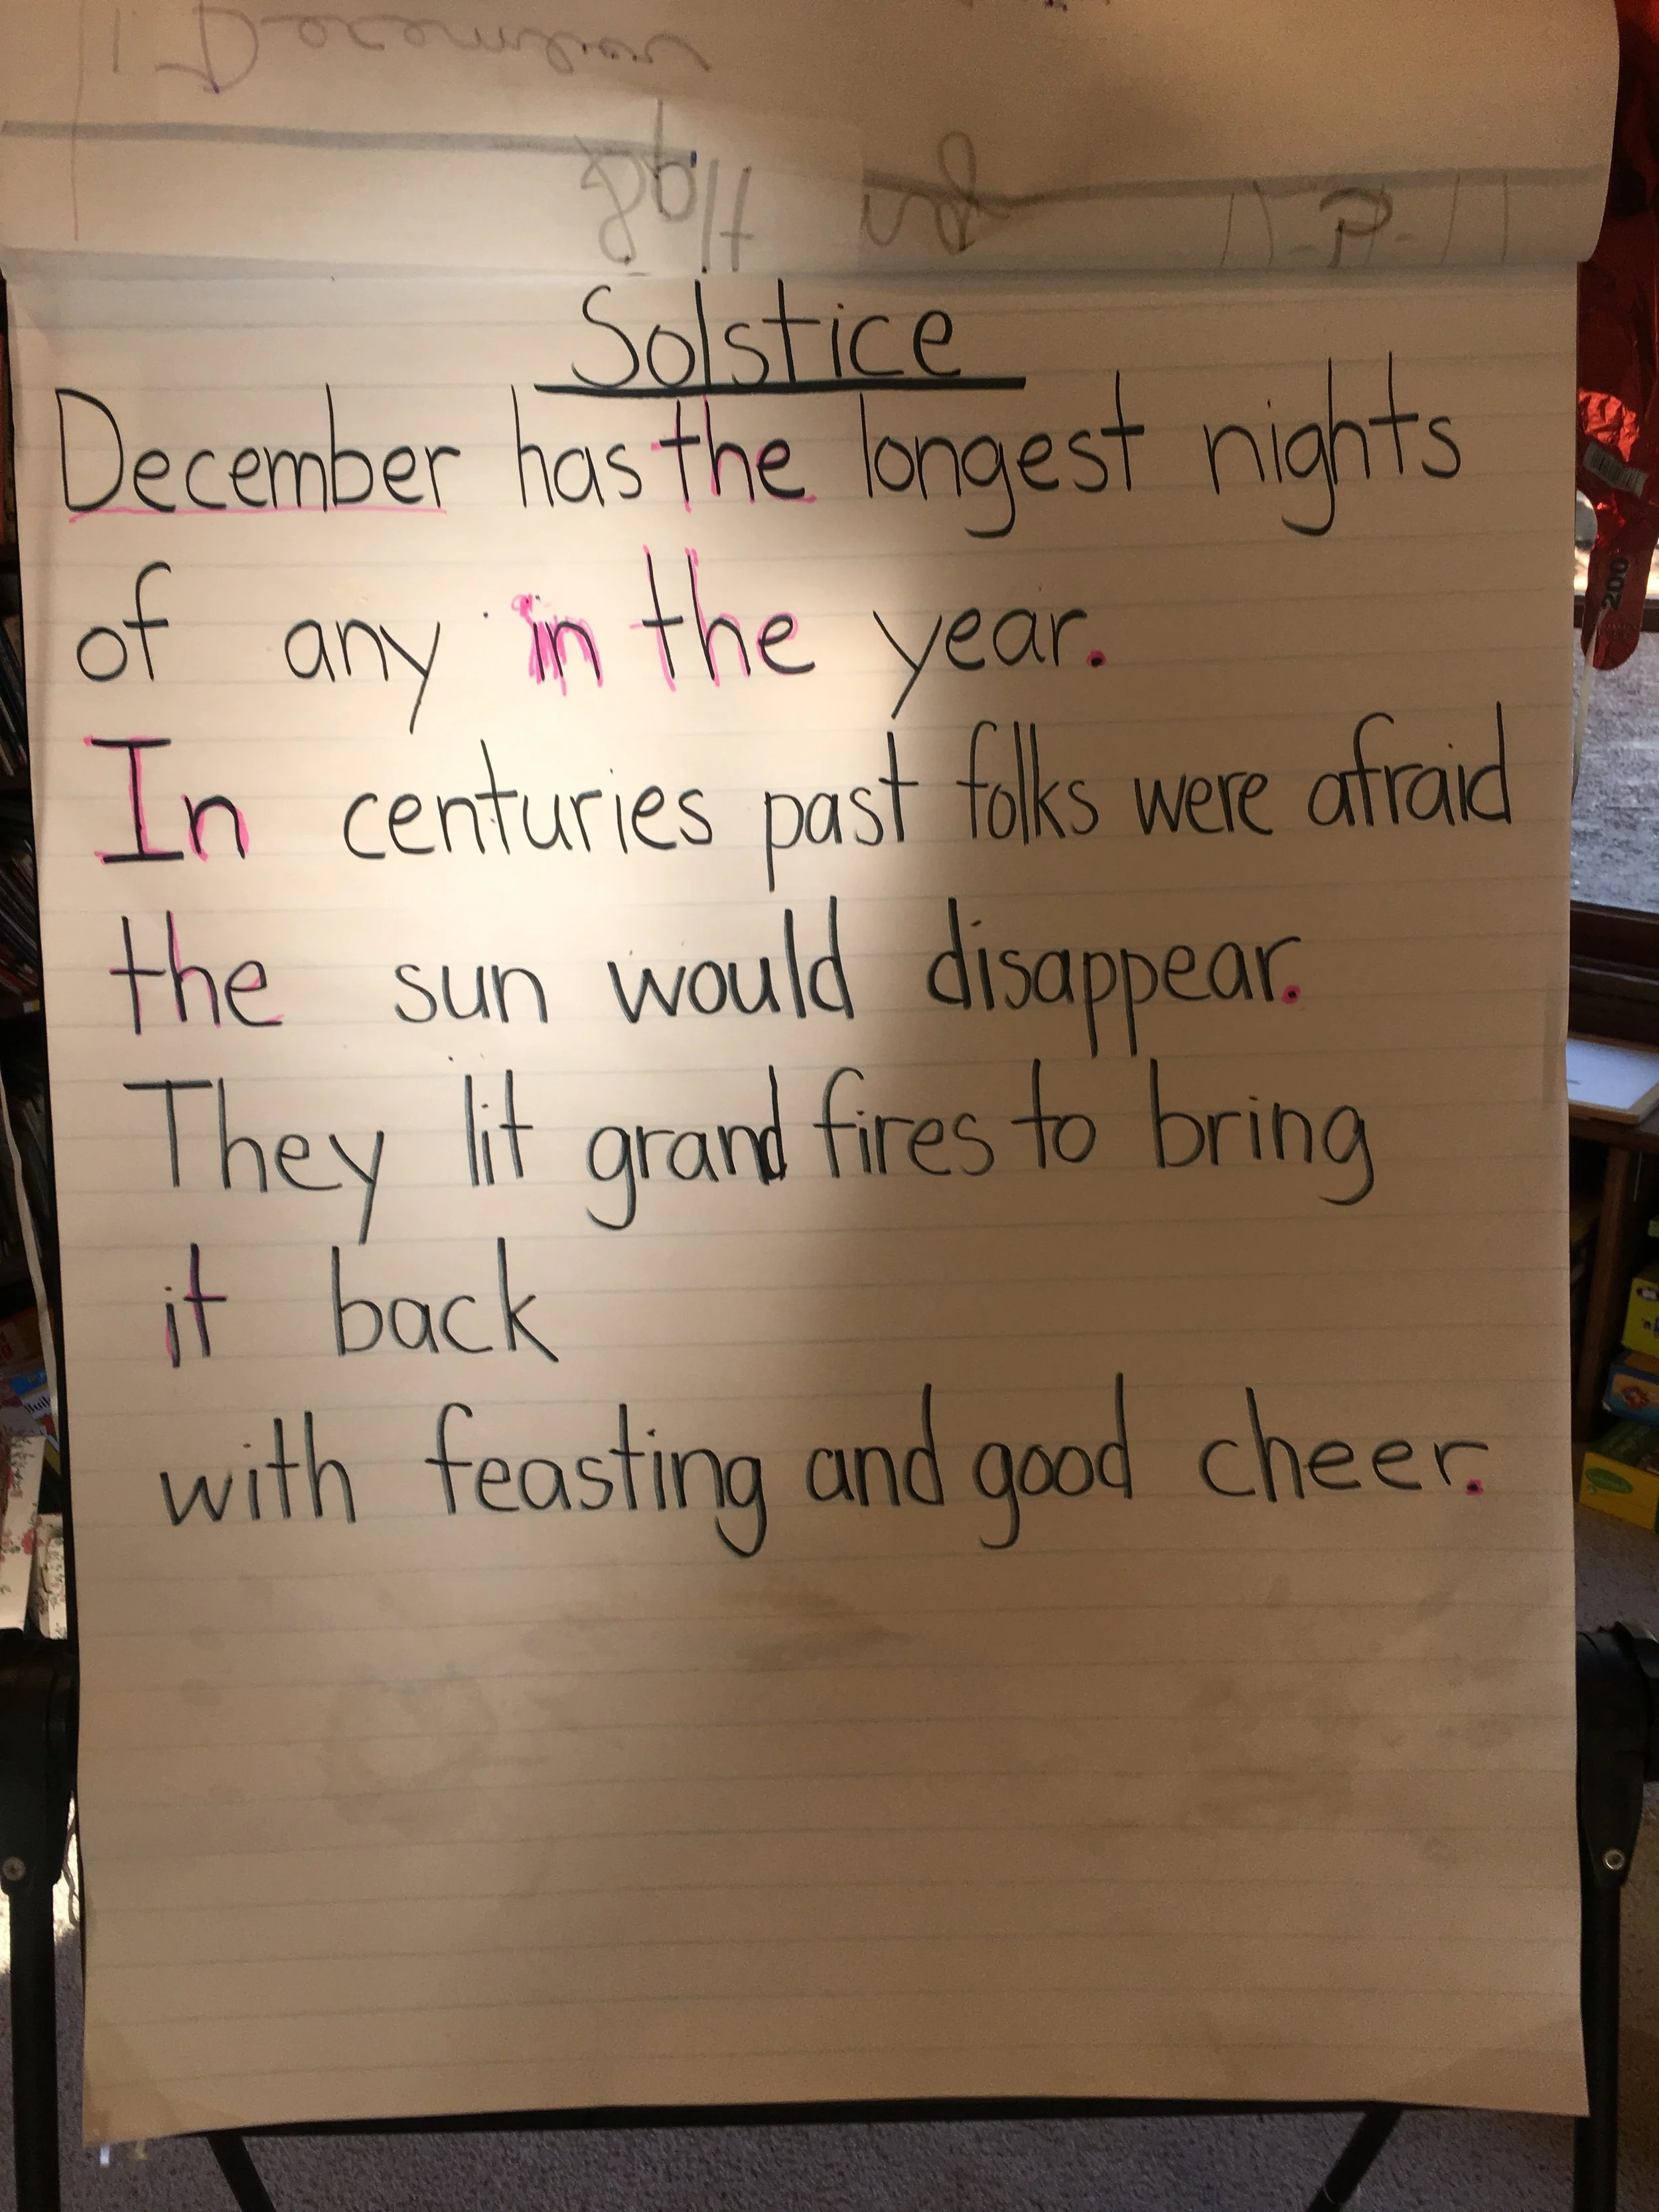 Solstice
December has the longest nights
of any in the year.
In centuries past folks were afraid
the sun would disappear.
They lit grand fires to bring
it back
with feasting and good cheer.
200